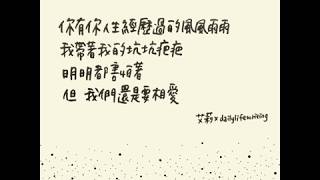 你有你人生經歷過的風風雨雨
我帶著我的坑坑疤疤
明明都害怕著
但 我們還是要相愛
艾莉 x dailylifewriting